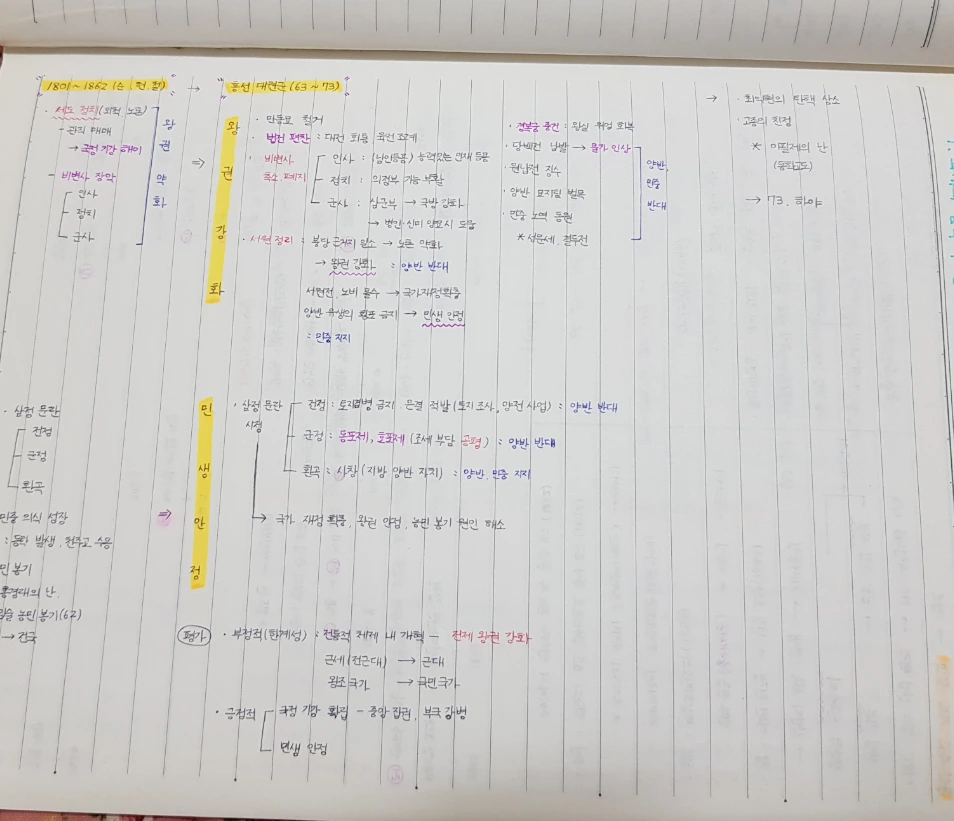 1801 ~ 1862 (순.헌.철)
→
흥선 대원군 (63 ~ 73)
· 세도 정치 (외척, 노론)
- 관직 매매
→ 국정 기강 해이
- 비변사 장악
인사
정치
군사
왕권 약화
⇒
왕권 강화
· 만동묘 철거
· 법전 편찬 : 대전 회통, 육전 조례
· 비변사 축소, 폐지
인사 : (남인등용) 능력있는 인재 등용
정치 : 의정부 기능 부활
군사 : 삼군부 → 국방 강화
→ 병인·신미 양요시 도움
· 서원 정리 : 붕당 근거지 일소 → 노론 약화
→ 왕권 강화 : 양반 반대
서원전, 노비 몰수 → 국가재정확충
양반 유생의 횡포 금지 → 민생 안정
: 민중 지지
· 경복궁 중건 : 왕실 위엄 회복
· 당백전 남발 → 물가 인상
· 원납전 징수
· 양반 묘지림 벌목
· 민중 노역 동원
* 성문세, 결두전
양반, 민중 반대
→
· 최익현의 탄핵 상소
· 고종의 친정
* 이필제의 난
(동학교도)
→ 73. 하야
· 삼정 문란
전정
군정
환곡
민중 의식 성장
: 동학 발생, 천주교 수용
민 봉기
홍경래의 난,
임술 농민 봉기(62)
→ 전국
⇒
민생 안정
· 삼정 문란 시정
전정 : 토지겸병 금지, 은결 적발 (토지 조사, 양전 사업) : 양반 반대
군정 : 동포제, 호포제 (조세 부담 공평) : 양반 반대
환곡 : 사창 (지방 양반 자치) : 양반, 민중 지지
→ 국가 재정 확충, 왕권 안정, 농민 봉기 원인 해소
평가
· 부정적 (한계성) : 전통적 체제 내 개혁 - 전제 왕권 강화
근세 (전근대) → 근대
왕조 국가 → 국민 국가
· 긍정적
국정 기강 확립 - 중앙 집권, 부국 강병
민생 안정